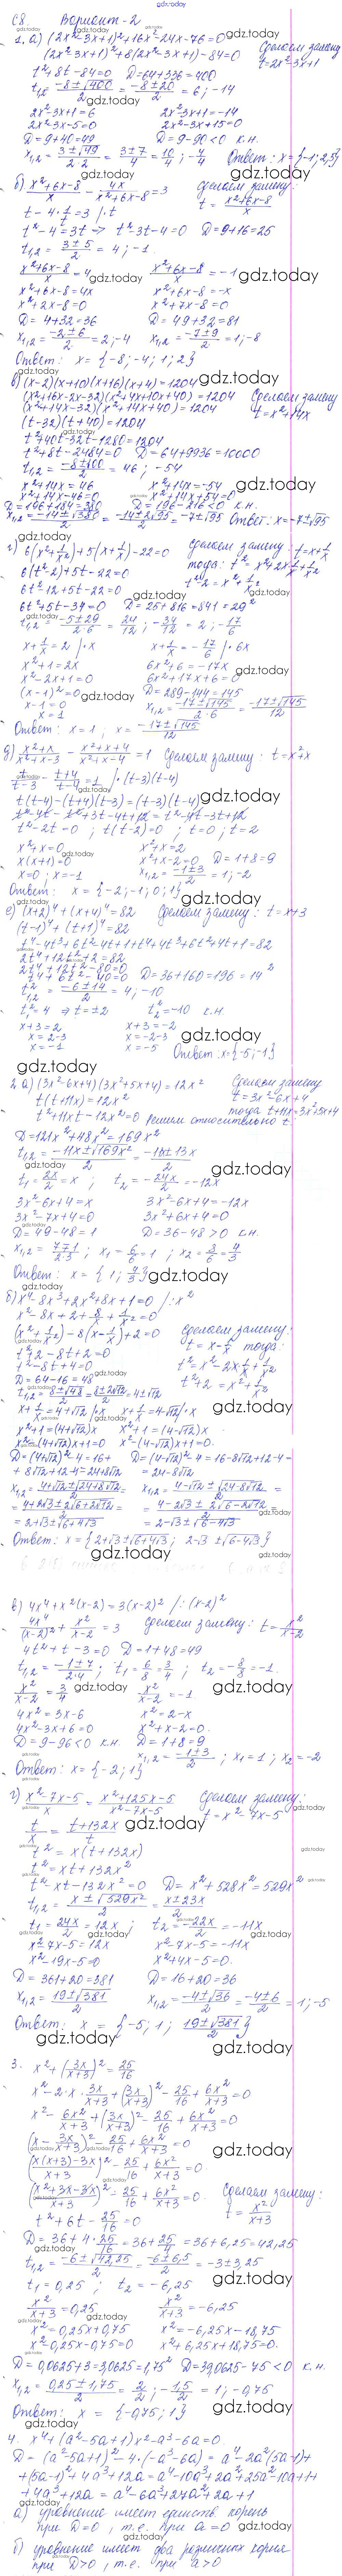 gdz.today
С8 Вариант-2
1. а) (2x²-3x+1)²+16x²-24x-76=0
(2x²-3x+1)²+8(2x²-3x+1)-84=0
Сделаем замену
t=2x²-3x+1
t²+8t-84=0 D=64+336=400
t₁,₂ = (-8±√400)/2 = (-8±20)/2 = 6; -14
2x²-3x+1=6 2x²-3x+1=-14
2x²-3x-5=0 2x²-3x+15=0
D=9+40=49 D=9-90<0 к.н.
x₁,₂ = (3±√49)/(2·2) = (3±7)/4 = 10/4; -4/4 Ответ: x={-1; 2,5}
б) (x²+6x-8)/x - 4x/(x²+6x-8) = 3 сделаем замену:
t - 4·1/t = 3 /·t t = (x²+6x-8)/x
t²-4=3t => t²-3t-4=0 D=9+16=25
t₁,₂ = (3±5)/2 = 4; -1
(x²+6x-8)/x = 4 (x²+6x-8)/x = -1
x²+6x-8=4x x²+6x-8=-x
x²+2x-8=0 x²+7x-8=0
D=4+32=36 D=49+32=81
x₁,₂ = (-2±6)/2 = 2; -4 x₁,₂ = (-7±9)/2 = 1; -8
Ответ: x={-8; -4; 1; 2}
в) (x-2)(x+10)(x+16)(x+4)=1204
(x²+16x-2x-32)(x²+4x+10x+40)=1204 Сделаем замену
(x²+14x-32)(x²+14x+40)=1204 t=x²+14x
(t-32)(t+40)=1204
t²+40t-32t-1280=1204
t²+8t-2484=0 D=64+9936=10000
t₁,₂ = (-8±100)/2 = 46; -54
x²+14x=46 x²+14x=-54
x²+14x-46=0 x²+14x+54=0
D=196+184=380 D=196-216<0 к.н.
x₁,₂ = (-14±√380)/2 = (-14±2√95)/2 = -7±√95 Ответ: x=-7±√95
г) 6(x²+1/x²)+5(x+1/x)-22=0 сделаем замену: t=x+1/x
6(t²-2)+5t-22=0 тогда: t²=x²+2x·1/x+1/x²
6t²-12+5t-22=0 t²-2=x²+1/x²
6t²+5t-34=0 D=25+816=841=29²
t₁,₂ = (-5±29)/(2·6) = 24/12; -34/12 = 2; -17/6
x+1/x=2 /·x x+1/x=-17/6 /·6x
x²+1=2x 6x²+6=-17x
x²-2x+1=0 6x²+17x+6=0
(x-1)²=0 D=289-144=145
x-1=0 x₁,₂ = (-17±√145)/(2·6) = (-17±√145)/12
x=1
Ответ: x=1; x=(-17±√145)/12
д) (x²+x)/(x²+x-3) - (x²+x+4)/(x²+x-4) = 1 Сделаем замену: t=x²+x
t/(t-3) - (t+4)/(t-4) = 1/1 /·(t-3)(t-4)
t(t-4)-(t+4)(t-3)=(t-3)(t-4)
t²-4t-t²+3t-4t+12=t²-4t-3t+12
t²-2t=0; t(t-2)=0; t=0; t=2
x²+x=0 x²+x=2
x(x+1)=0 x²+x-2=0 D=1+8=9
x=0; x=-1 x₁,₂ = (-1±3)/2 = 1; -2
Ответ: x={-2; -1; 0; 1}
е) (x+2)⁴+(x+4)⁴=82 Сделаем замену: t=x+3
(t-1)⁴+(t+1)⁴=82
t⁴-4t³+6t²-4t+1+t⁴+4t³+6t²+4t+1=82
2t⁴+12t²+2=82
2t⁴+12t²-80=0
t⁴+6t²-40=0 D=36+160=196=14²
t²₁,₂ = (-6±14)/2 = 4; -10
t₁²=4 => t=±2 t₂²=-10 к.н.
x+3=2 x+3=-2
x=2-3 x=-2-3
x=-1 x=-5 Ответ: x={-5; -1}
2. а) (3x²-6x+4)(3x²+5x+4)=12x² Сделаем замену
t(t+11x)=12x² t=3x²-6x+4
t²+11xt-12x²=0 решим относительно t. тогда t+11x=3x²+5x+4
D=121x²+48x²=169x²
t₁,₂ = (-11x±√169x²)/2 = (-11x±13x)/2
t₁=2x/2=x; t₂=-24x/2=-12x
3x²-6x+4=x 3x²-6x+4=-12x
3x²-7x+4=0 3x²+6x+4=0
D=49-48=1 D=36-48>0 к.н.
x₁,₂ = (7±1)/(2·3); x₁=6/6=1; x₂=8/6=4/3
Ответ: x={1; 4/3}
б) x⁴-8x³+2x²+8x+1=0 /:x²
x²-8x+2+8/x+1/x²=0
(x²+1/x²)-8(x-1/x)+2=0 сделаем замену:
t²+2-8t+2=0 t=x-1/x тогда:
t²-8t+4=0 t²=x²-2x·1/x+1/x²
D=64-16=48 t²+2=x²+1/x²
t₁,₂ = (8±√48)/2 = (8±2√12)/2 = 4±√12
x+1/x=4+√12 /·x x+1/x=4-√12 /·x
x²+1=(4+√12)x x²+1=(4-√12)x
x²-(4+√12)x+1=0 x²-(4-√12)x+1=0.
D=(4+√12)²-4=16+ D=(4-√12)²-4=16-8√12+12-4=
+8√12+12-4=24+8√12 =24-8√12
x₁,₂ = (4+√12±√(24+8√12))/2 = x₁,₂ = (4-√12±√(24-8√12))/2 =
= (4+2√3±2√(6+2√12))/2 = = (4-2√3±2√(6-2√12))/2 =
= 2+√3±√(6+4√3) = 2-√3±√(6-4√3)
Ответ: x={2+√3±√(6+4√3); 2-√3±√(6-4√3)}
в) 4x⁴+x²(x-2)=3(x-2)² /:(x-2)²
4x⁴/(x-2)² + x²/(x-2) = 3 сделаем замену: t=x²/(x-2)
4t²+t-3=0 D=1+48=49
t₁,₂ = (-1±7)/(2·4); t₁=6/8=3/4; t₂=-8/8=-1.
x²/(x-2)=3/4 x²/(x-2)=-1
4x²=3x-6 x²=2-x
4x²-3x+6=0 x²+x-2=0.
D=9-96<0 к.н. D=1+8=9
x₁,₂ = (-1±3)/2; x₁=1; x₂=-2
Ответ: x={-2; 1}
г) (x²-7x-5)/x = (x²+125x-5)/(x²-7x-5) Сделаем замену:
t/x = (t+132x)/t t=x²-7x-5
t²=x(t+132x)
t²=xt+132x²
t²-xt-132x²=0 D=x²+528x²=529x²
t₁,₂ = (x±√529x²)/2 = (x±23x)/2
t₁=24x/2=12x; t₂=-22x/2=-11x
x²-7x-5=12x x²-7x-5=-11x
x²-19x-5=0 x²+4x-5=0.
D=361+20=381 D=16+20=36
x₁,₂ = (19±√381)/2 x₁,₂ = (-4±√36)/2 = (-4±6)/2 = 1; -5
Ответ: x={-5; 1; (19±√381)/2}
3. x²+(3x/(x+3))²=25/16
x²-2·x·3x/(x+3)+(3x/(x+3))²-25/16+6x²/(x+3)=0
x²-6x²/(x+3)+(3x/(x+3))²-25/16+6x²/(x+3)=0
(x-3x/(x+3))²-25/16+6x²/(x+3)=0
((x(x+3)-3x)/(x+3))²-25/16+6x²/(x+3)=0.
((x²+3x-3x)/(x+3))²-25/16+6x²/(x+3)=0. Сделаем замену:
t²+6t-25/16=0 t=x²/(x+3)
D=36+4·25/16=36+25/4=36+6,25=42,25
t₁,₂ = (-6±√42,25)/2 = (-6±6,5)/2 = -3±3,25
t₁=0,25; t₂=-6,25
x²/(x+3)=0,25 x²/(x+3)=-6,25
x²=0,25x+0,75 x²=-6,25x-18,75
x²-0,25x-0,75=0 x²+6,25x+18,75=0.
D=0,0625+3=3,0625=1,75² D=39,0625-75<0 к.н.
x₁,₂ = (0,25±1,75)/2 = 2/2; -1,5/2 = 1; -0,75
Ответ: x={-0,75; 1}
4. x⁴+(a²-5a+1)x²-a³-6a=0.
D=(a²-5a+1)²-4·(-a³-6a)=a⁴-2a²(5a-1)+
+(5a-1)²+4a³+12a=a⁴-10a³+2a²+25a²-10a+1+
+4a³+12a=a⁴-6a³+27a²+2a+1
а) уравнение имеет единств. корень
при D=0, т.е. при a=0
б) уравнение имеет два различных корня
при D>0, т.е. при a>0